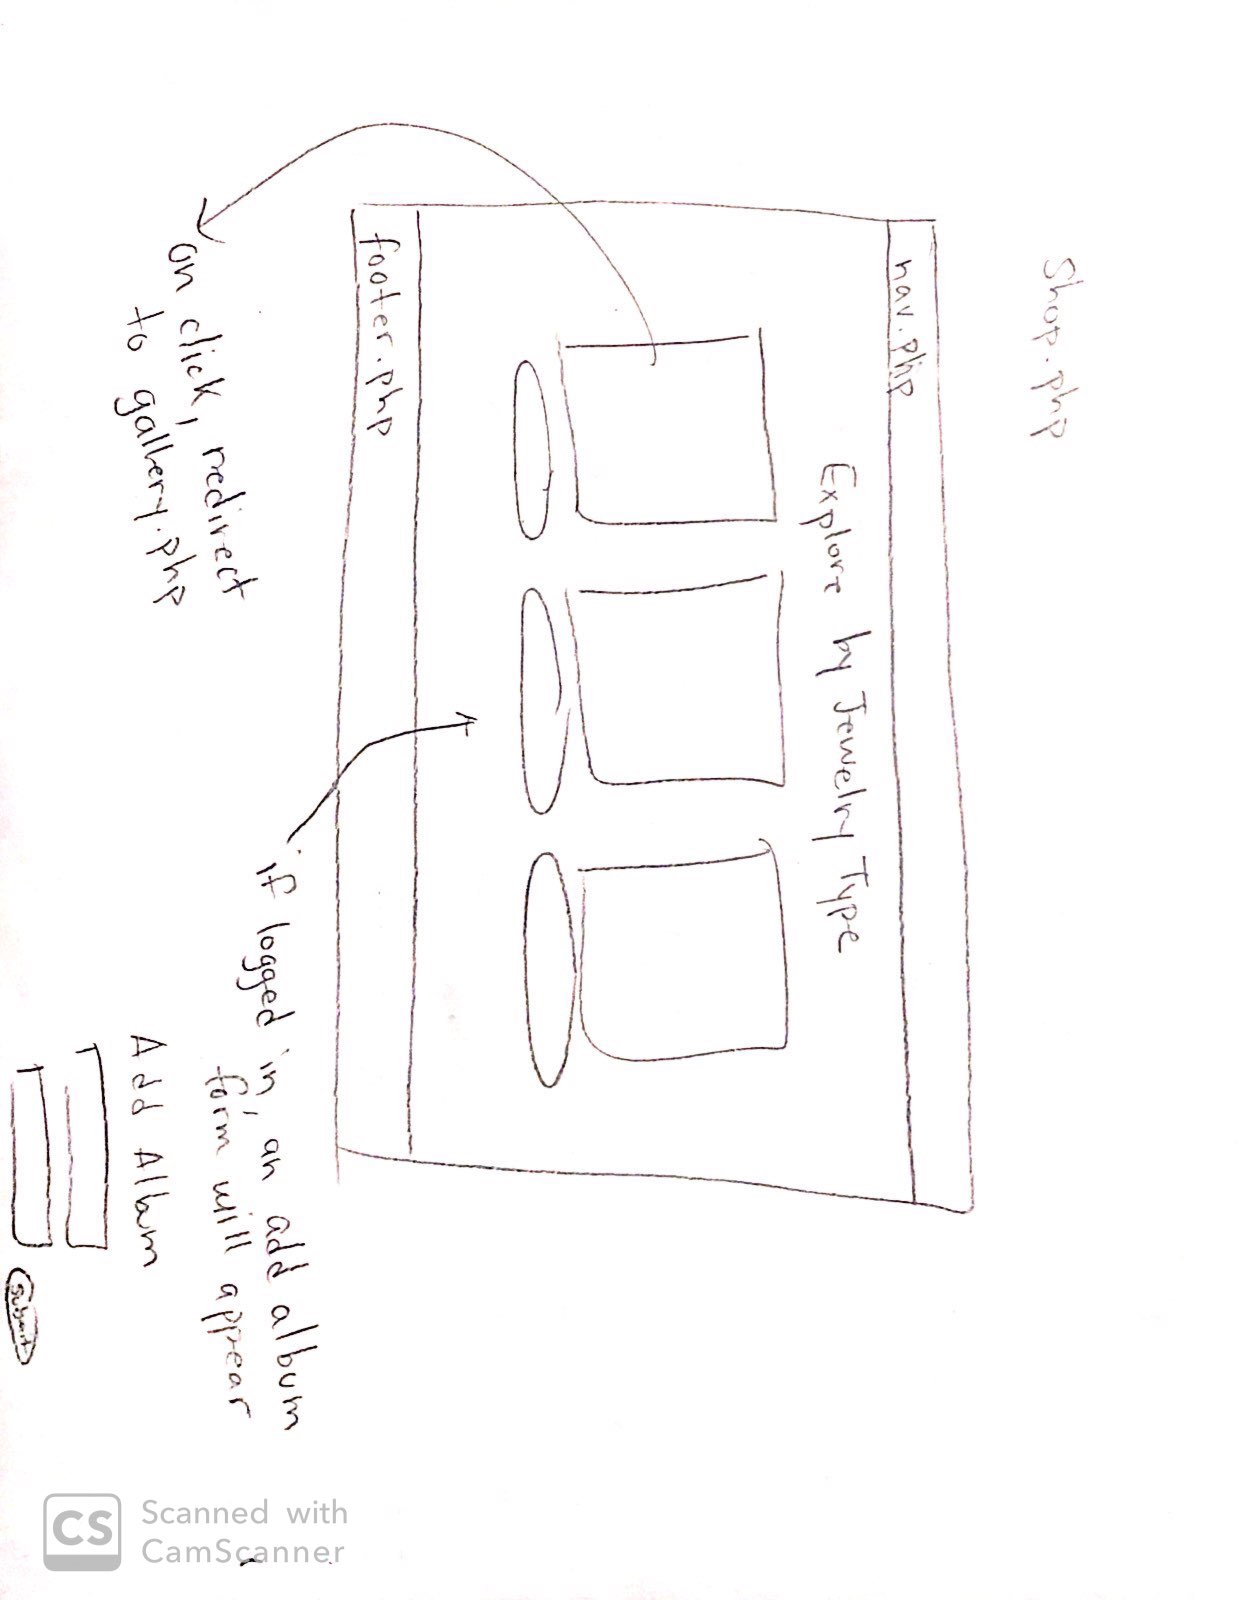 Shop.php
nav.php
Explore by Jewelry Type
footer.php
on click, redirect
to gallery.php
if logged in, an add album
form will appear
Add Album
Submit
CS
Scanned with
CamScanner